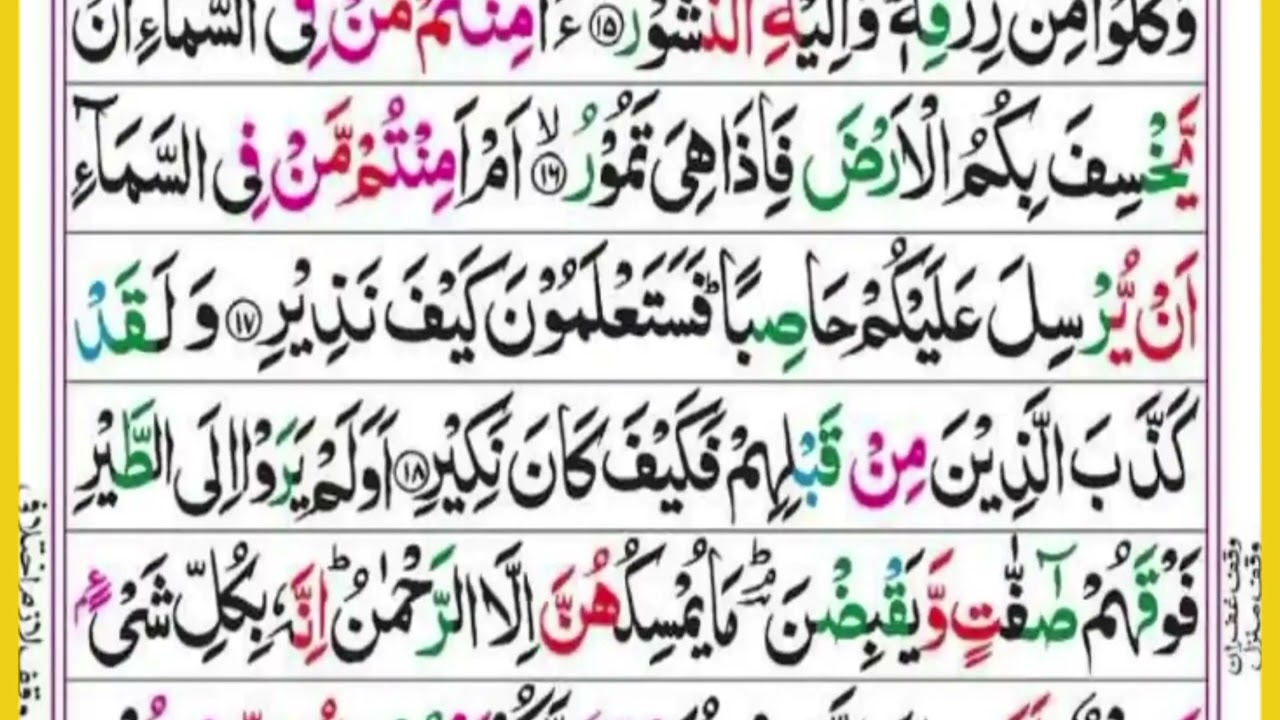 وَكُلُوْا مِنْ رِّزْقِهٖ ؕ وَاِلَيْهِ النُّشُوْرُ ﴿۱۵﴾ ءَاَمِنْتُمْ مَّنْ فِى السَّمَآءِ اَنْ
يَّخْسِفَ بِكُمُ الْاَرْضَ فَاِذَا هِىَ تَمُوْرُ ۙ﴿۱۶﴾ اَمْ اَمِنْتُمْ مَّنْ فِى السَّمَآءِ
اَنْ يُّرْسِلَ عَلَيْكُمْ حَاصِبًا ؕ فَسَتَعْلَمُوْنَ كَيْفَ نَذِيْرِ ﴿۱۷﴾ وَ لَقَدْ
كَذَّبَ الَّذِيْنَ مِنْ قَبْلِهِمْ فَكَيْفَ كَانَ نَكِيْرِ ﴿۱۸﴾ اَوَلَمْ يَرَوْا اِلَى الطَّيْرِ
فَوْقَهُمْ صٰٓفّٰتٍ وَّيَقْبِضْنَ ؔؕ مَا يُمْسِكُهُنَّ اِلَّا الرَّحْمٰنُ ؕ اِنَّهٗ بِكُلِّ شَىْءٍۭ
وقف غفران
وقف منزل